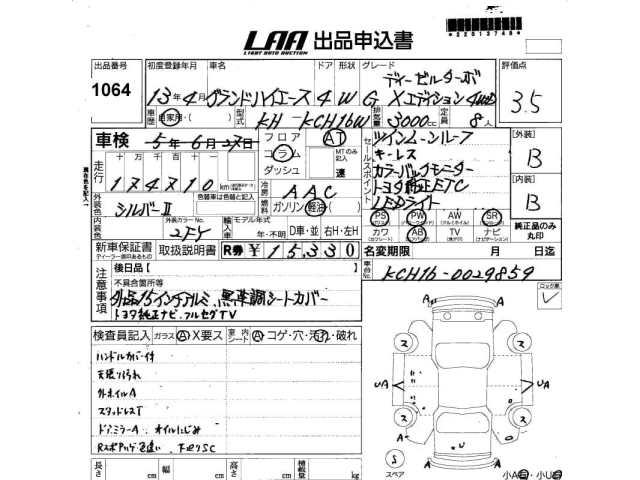 LAA 出品申込書
LIGHT AUTO AUCTION
*22013748*
出品番号 初度登録年月 車名 ドア 形状 グレード 評価点
1064 13年4月 グランドハイエース 4 W G ディーゼルターボ Xエディション 4WD 3.5
車歴 自家用・( ) 型式 KH-KCH16W 排気量 3000cc 定員 8人
車検 5年6月27日 フロア コラム ダッシュ AT MTのみ記入 速
セールスポイント ツインムーンルーフ
キーレス
カラーバックモニター
トヨタ純正ETC
LEDライト
[外装] B
[内装] B
走行 十万 万 千 百 十 一
174710km
冷房 AAC
外装色 シルバーⅡ 色替車は色替と記入 燃料 ガソリン・軽油( )
外装カラーNo. 2FY 輸入車 モデル年式 年・不明 D車・並 右H・左H
PS PW AW SR
カワ AB TV ナビ
純正品のみ丸印
新車保証書 取扱説明書 R券 ¥15,330
名変期限 月 日迄
車台No. KCH16-0029859
注意事項 後日品[ ]
不具合箇所等
外品15インチアルミ、黒革調シートカバー
トヨタ純正ナビ、フルセグTV
現在色を記入
ロック車
検査員記入 ガラス A X要ス 室内シート A コゲ・穴・汚れ・破れ
ハンドルカバー付
天張り汚れ
外ホイルA
スタッドレスT
ドアミラーA オイルにじみ
Rスポアルゲ色違い 下廻りSC
A
ス ス
UA UA
ス ス
A A
U
A A
S
スペア
小A 小U
長さ cm 幅 cm 高さ cm 積載量 kg